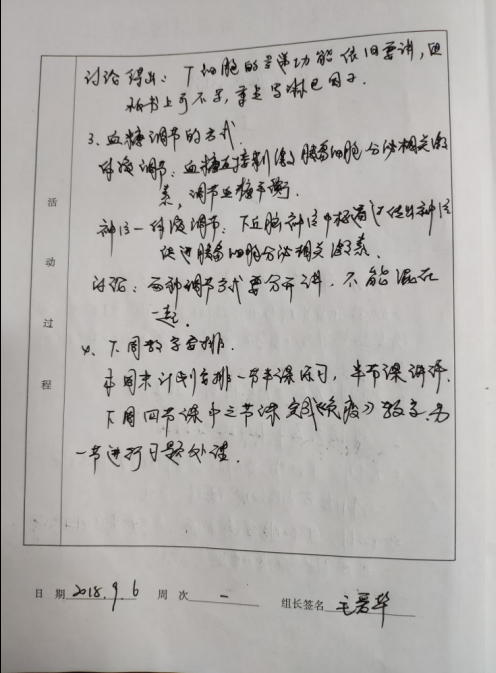 讨论得出:T细胞的呈递功能依旧要讲,但
板书上可不写,重点写淋巴因子.
3、血糖调节的方式.
体液调节:血糖直接刺激胰岛细胞分泌相关激
素,调节血糖平衡.
神经—体液调节:下丘脑神经中枢通过传出神经
促进胰岛细胞分泌相关激素.
讨论:两种调节方式要分开讲.不能混在
一起.
4、下周教学安排.
本周末计划安排一节半课练习,半节课讲评.
下周四节课中三节课完成《免疫》教学.另
一节进行习题处理.
活动过程
日 期 2018.9.6 周 次 一 组长签名 毛 华